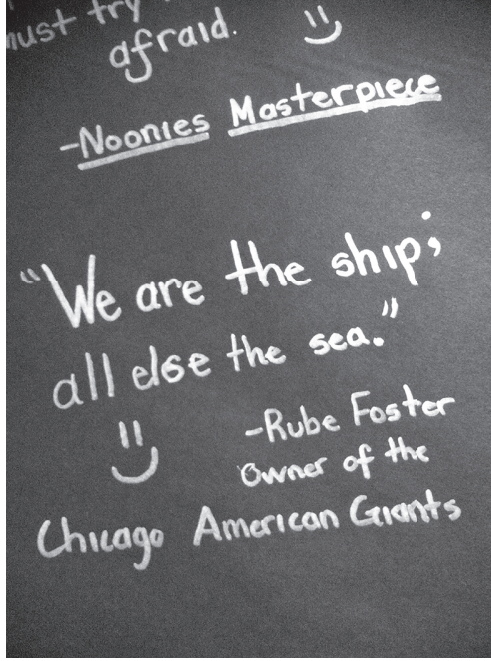 must try
afraid.
-Noonies Masterpiece
"We are the ship;
all else the sea."
-Rube Foster
Owner of the
Chicago American Giants